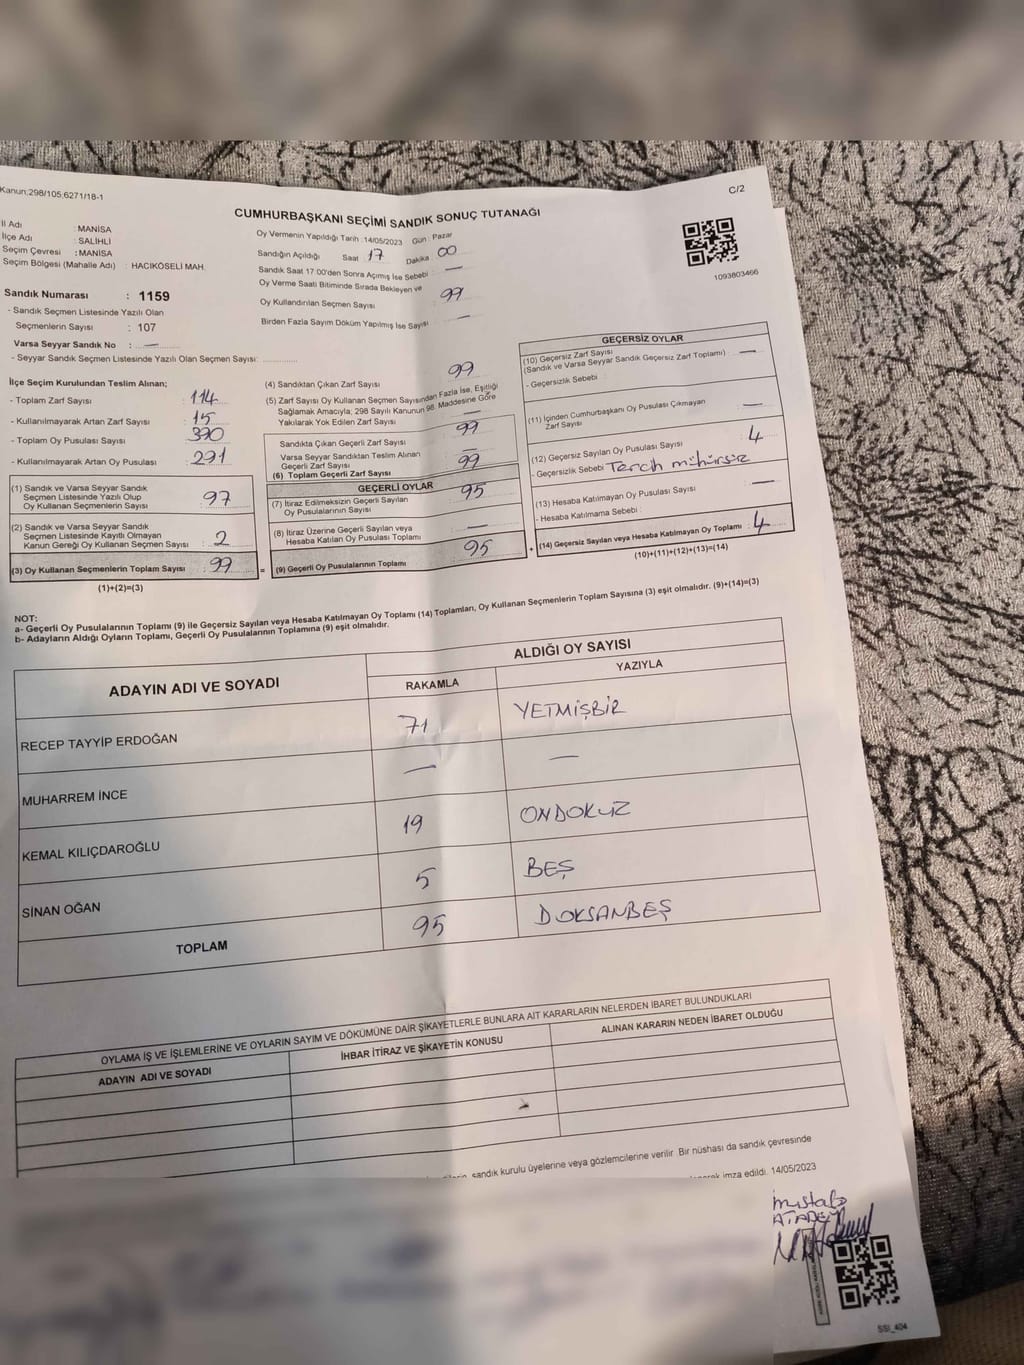 Kanun;298/105;6271/18-1
C/2
CUMHURBAŞKANI SEÇİMİ SANDIK SONUÇ TUTANAĞI
İl Adı : MANİSA
İlçe Adı : SALİHLİ
Seçim Çevresi : MANİSA
Seçim Bölgesi (Mahalle Adı) : HACIKÖSELİ MAH.
Sandık Numarası : 1159
- Sandık Seçmen Listesinde Yazılı Olan
Seçmenlerin Sayısı : 107
Varsa Seyyar Sandık No : —
- Seyyar Sandık Seçmen Listesinde Yazılı Olan Seçmen Sayısı:
Oy Vermenin Yapıldığı Tarih :14/05/2023 Gün : Pazar
Sandığın Açıldığı Saat 17 Dakika 00
Sandık Saat 17:00'den Sonra Açımış İse Sebebi : —
Oy Verme Saati Bitiminde Sırada Bekleyen ve
Oy Kullandırılan Seçmen Sayısı : 99
Birden Fazla Sayım Döküm Yapılmış İse Sayısı : —
1093803466
İlçe Seçim Kurulundan Teslim Alınan;
- Toplam Zarf Sayısı : 114
- Kullanılmayarak Artan Zarf Sayısı : 15
- Toplam Oy Pusulası Sayısı : 390
- Kullanılmayarak Artan Oy Pusulası : 291
(1) Sandık ve Varsa Seyyar Sandık
Seçmen Listesinde Yazılı Olup
Oy Kullanan Seçmenlerin Sayısı : 97
(2) Sandık ve Varsa Seyyar Sandık
Seçmen Listesinde Kayıtlı Olmayan
Kanun Gereği Oy Kullanan Seçmen Sayısı : 2
(3) Oy Kullanan Seçmenlerin Toplam Sayısı : 99
(1)+(2)=(3)
(4) Sandıktan Çıkan Zarf Sayısı : 99
(5) Zarf Sayısı Oy Kullanan Seçmen Sayısından Fazla İse, Eşitliği
Sağlamak Amacıyla; 298 Sayılı Kanunun 98. Maddesine Göre
Yakılarak Yok Edilen Zarf Sayısı : —
Sandıkta Çıkan Geçerli Zarf Sayısı : 99
Varsa Seyyar Sandıktan Teslim Alınan
Geçerli Zarf Sayısı
(6) Toplam Geçerli Zarf Sayısı : 99
GEÇERLİ OYLAR
(7) İtiraz Edilmeksizin Geçerli Sayılan
Oy Pusulalarının Sayısı : 95
(8) İtiraz Üzerine Geçerli Sayılan veya
Hesaba Katılan Oy Pusulası Toplamı : —
(9) Geçerli Oy Pusulalarının Toplamı : 95
GEÇERSİZ OYLAR
(10) Geçersiz Zarf Sayısı
(Sandık ve Varsa Seyyar Sandık Geçersiz Zarf Toplamı) : —
- Geçersizlik Sebebi :
(11) İçinden Cumhurbaşkanı Oy Pusulası Çıkmayan
Zarf Sayısı : —
(12) Geçersiz Sayılan Oy Pusulası Sayısı : 4
- Geçersizlik Sebebi : Tercih mühürsüz
(13) Hesaba Katılmayan Oy Pusulası Sayısı : —
- Hesaba Katılmama Sebebi :
(14) Geçersiz Sayılan veya Hesaba Katılmayan Oy Toplamı : 4
(10)+(11)+(12)+(13)=(14)
NOT:
a- Geçerli Oy Pusulalarının Toplamı (9) ile Geçersiz Sayılan veya Hesaba Katılmayan Oy Toplamı (14) Toplamları, Oy Kullanan Seçmenlerin Toplam Sayısına (3) eşit olmalıdır. (9)+(14)=(3)
b- Adayların Aldığı Oyların Toplamı, Geçerli Oy Pusulalarının Toplamına (9) eşit olmalıdır.
ADAYIN ADI VE SOYADI
ALDIĞI OY SAYISI
RAKAMLA YAZIYLA
RECEP TAYYİP ERDOĞAN 71 YETMİŞBİR
MUHARREM İNCE — —
KEMAL KILIÇDAROĞLU 19 ONDOKUZ
SİNAN OĞAN 5 BEŞ
TOPLAM 95 DOKSANBEŞ
OYLAMA İŞ VE İŞLEMLERİNE VE OYLARIN SAYIM VE DÖKÜMÜNE DAİR ŞİKAYETLERLE BUNLARA AİT KARARLARIN NELERDEN İBARET BULUNDUKLARI
ADAYIN ADI VE SOYADI İHBAR İTİRAZ VE ŞİKAYETİN KONUSU ALINAN KARARIN NEDEN İBARET OLDUĞU
sandık kurulu üyelerine veya gözlemcilerine verilir. Bir nüshası da sandık çevresinde
imza edildi. 14/05/2023
Mustafa
SSİ_404